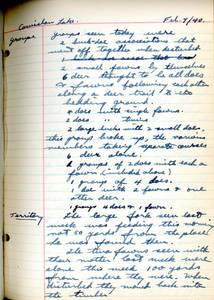 Cowichan Lake. Feb. 7/40.
Groups Groups seen today were
2 buck-doe associations that
went off together when disturbed
a small fawns by themselves
6 deer thought to be all does
& fawns following each other
along a deer trail to the
bedding ground.
4 does with single fawns.
2 does " twins
2 large bucks with 2 small does;
this group broke up, the various
members taking separate courses
6 deer alone.
2 groups of 2 does with each a
fawn (included above)
1 group of 4 does.
1 doe with 2 fawns & one
other deer.
1 group 4 does & 1 fawn.
Territory The large fork seen last
week was feeding this morning
not 50 yards from the place
he was found then.
The two fawns seen with
their mother last week were
alone this week 100 yards
from where the men
disturbed the band back into
the timber.